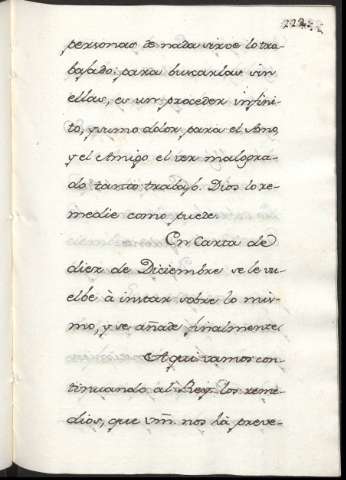 personas de nada sirve lo tra-
bajado: para buscarlas sin
ellas, es un proceder infini-
to, y sumo dolor para el Amo,
y el Amigo el ver malogra-
do tanto trabajo. Dios lo re-
medie como puede.
En Carta de
diez de Diciembre se le vu-
elbe à instar sobre lo mis-
mo, y se añade finalmente
Aqui vamos con-
tinuando al Rey los reme-
dios, que Vm. nos hà preve-